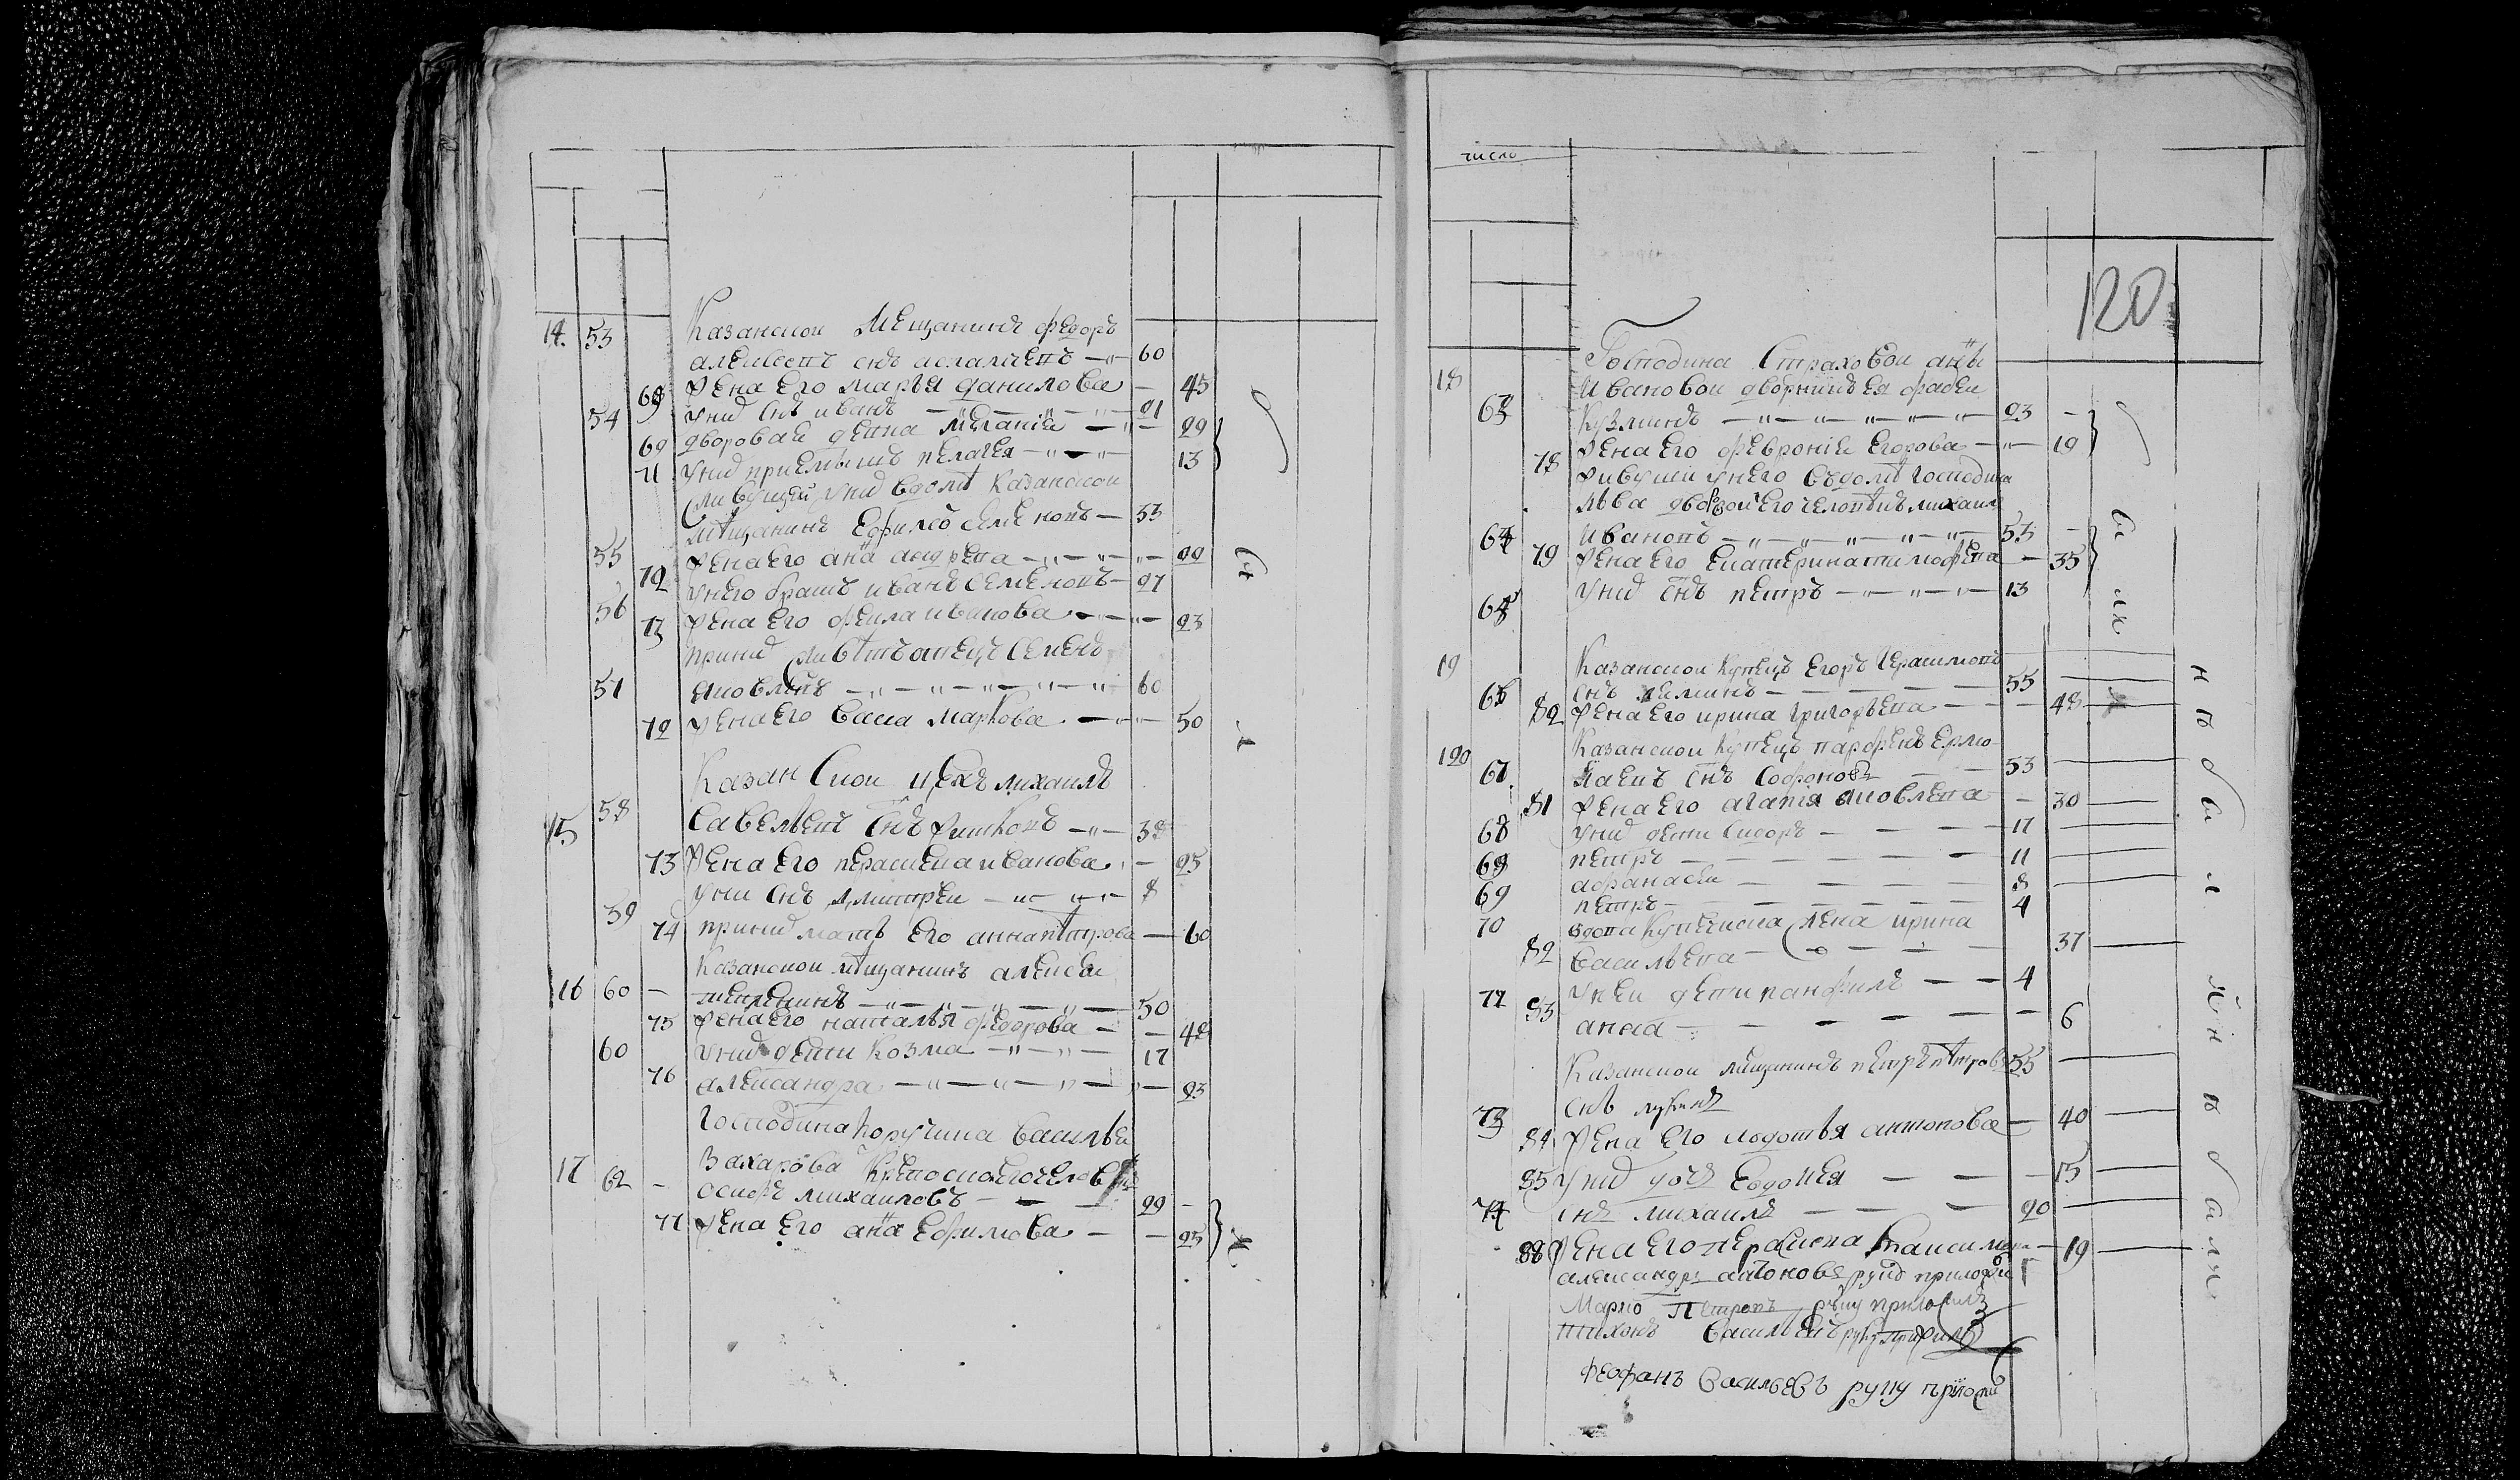 14. 53 Казанскои мещанинъ федоръ
алексеевъ снъ асламъевъ 60
68 жена его марья данилова — 45
54 у нихъ снъ иванъ 21
69 дворовае девка меланiе — 29
71 у нихъ приемышъ пелагея 13
живущей у нихъ въ доме казанскои
55 мещанинъ Ефимъ семеновъ — 33
72 жена его анна андреева 22
56 у него братъ иванъ семеновъ — 27
73 жена его фекла иванова 23
при нихъ живетъ отецъ семенъ
57 яковлевъ 60
72 жена его васса маркова 50
Казанскои цехъ михаилъ
15 58 савельевъ снъ 38
73 жена его парасковеа иванова 25
59 у них снъ дмитреи 8
74 при нихъ мать его анна петрова — 60
Казанскои мещанинъ алексеи
16 60 — 50
75 жена его наталья федорова — 48
60 у нихъ дети козма 17
76 александра 23
Господина поручика василья
17 62 — захарова крепоснои его человекъ
осипъ михаиловъ 22 —
77 жена его анна Ефимова — 25
число
120
Господина страховои анны
18 Ивановои дворникъ ея фадеи
63 кузминъ 23 —
78 жена его феврониe Егорова 19
живущи у него въ доме господина
льва дворовои его человекъ михаила
64 ивановъ 53 —
79 жена его екатерина тимофеева — 35
65 у нихъ снъ петръ 13
19 Казанскои купецъ Егоръ герасимовъ
66 снъ 55
80 жена его ирина григорьева — 48
120 Казанскои купецъ парфенъ Ермо-
67. лаевъ снъ софроновъ 53
81 жена его агапия яковлева — 30
68 у нихъ дети сидоръ 17
69 петръ 11
69 афанасеи 8
70 петръ 4
вдова купеческа жена ирина
82 васильева — 37
72 у неи дети панфилъ 4
83 анна — 6
Казанскои мещанинъ петръ петровъ 55
73 снъ
84 жена его федотья антонова — 40
85 у нихъ дочь Евдокея 15
74 снъ михаилъ 20
88 жена его парасковеа максимова — 19
александръ антоновъ руку приложи
Марко Петровъ руку приложилъ
тихонъ васильевъ руку приложилъ
феофанъ васильевъ руку приложи